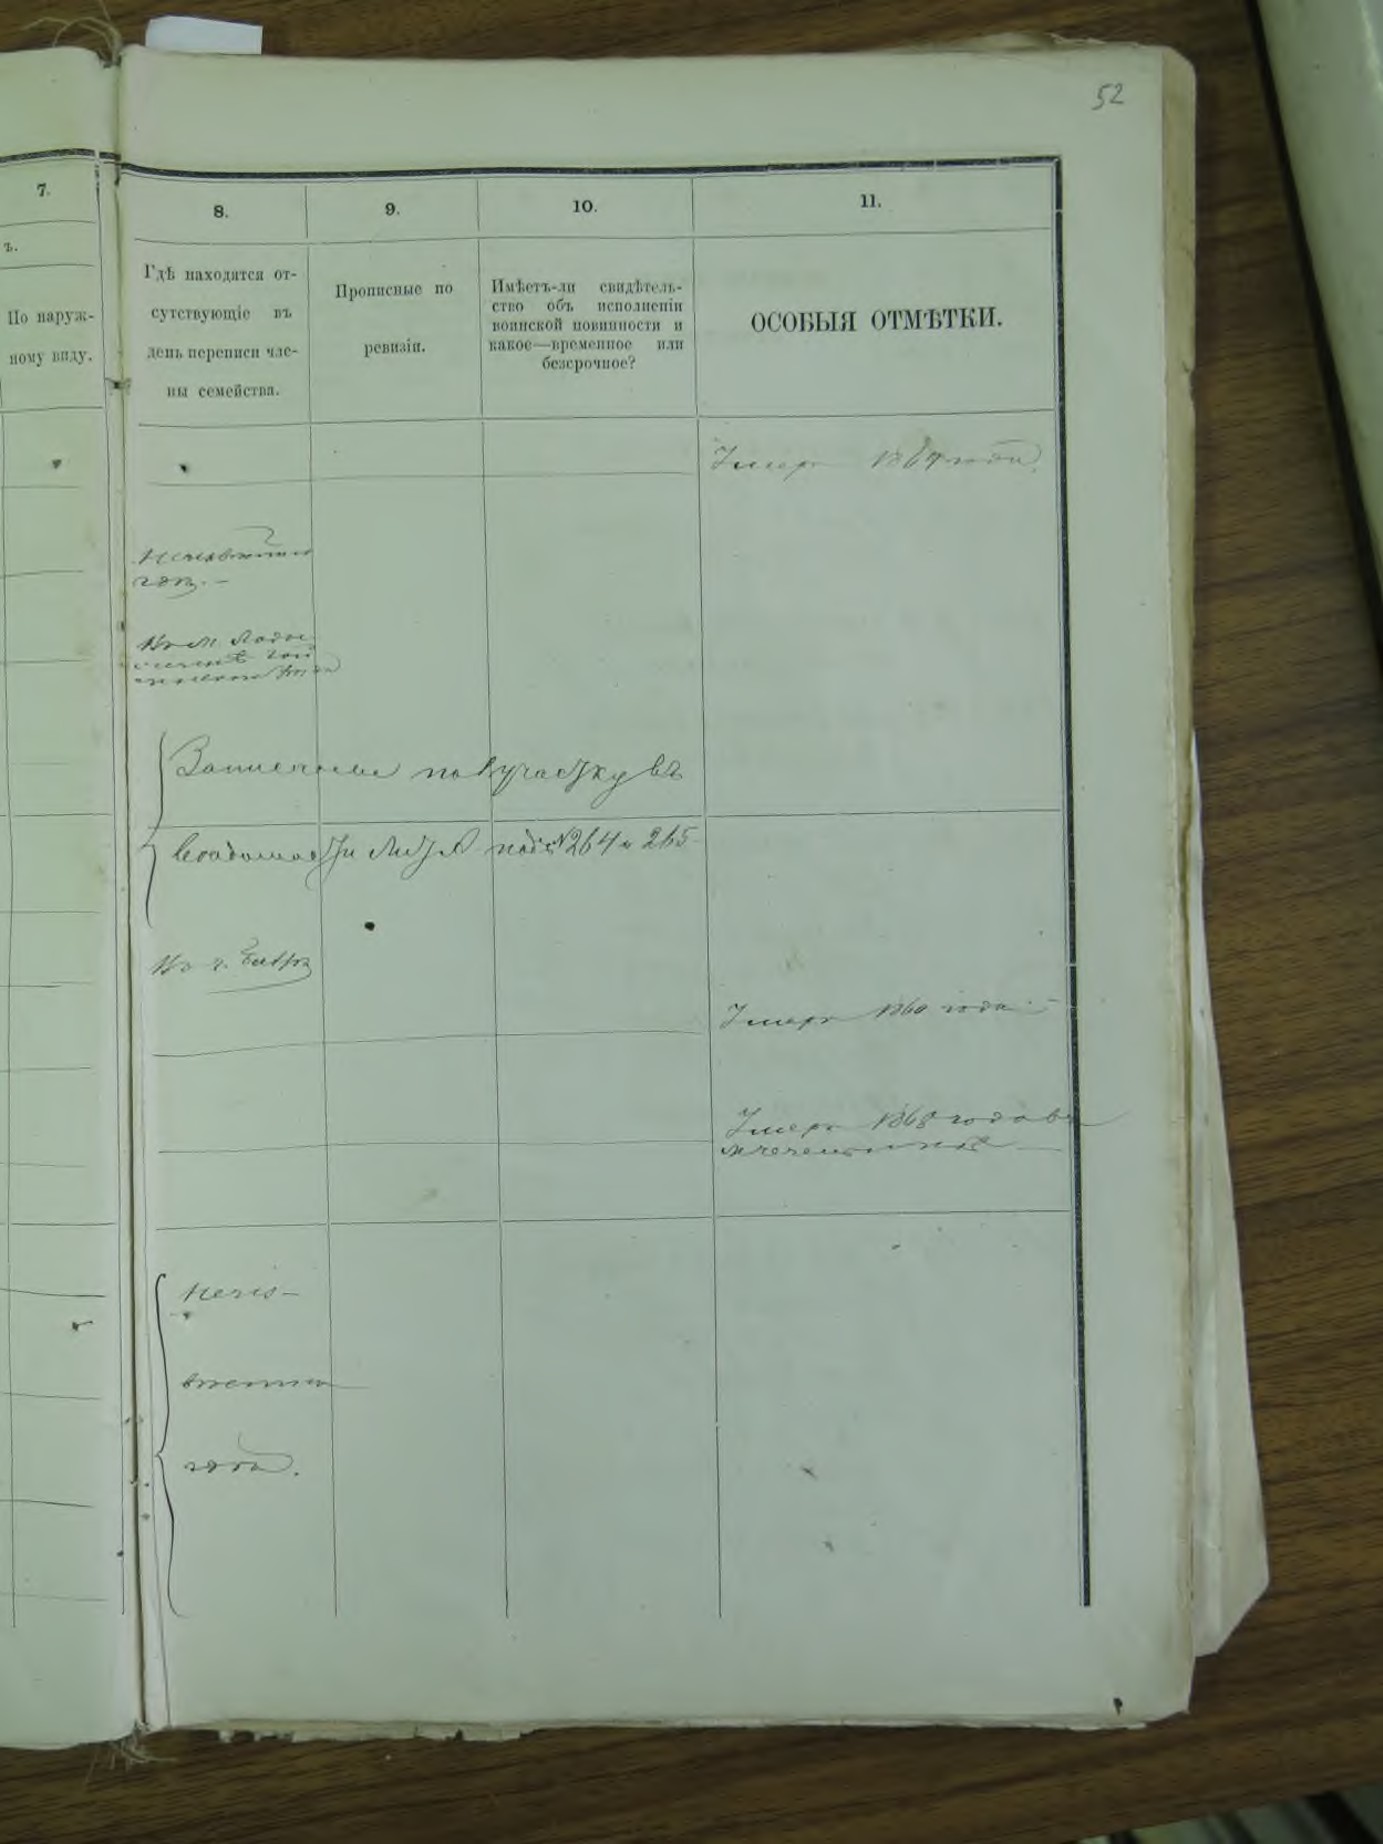 52
7.
8.
9.
10.
11.
ъ.
По наруж-
ному виду.
Гдѣ находятся от-
сутствующіе въ
день переписи чле-
ны семейства.
Прописные по
ревизіи.
Имѣетъ-ли свидѣтель-
ство объ исполненіи
воинской повинности и
какое—временное или
безсрочное?
ОСОБЫЯ ОТМѢТКИ.
Умеръ 1867 года.
Неизвѣстно
гдѣ. -
Въ м.
Записаны по участку въ
подъ № 264 и 265
Въ г.
Умеръ 1860 года
Умеръ 1868 года въ
Неиз-
вѣстно